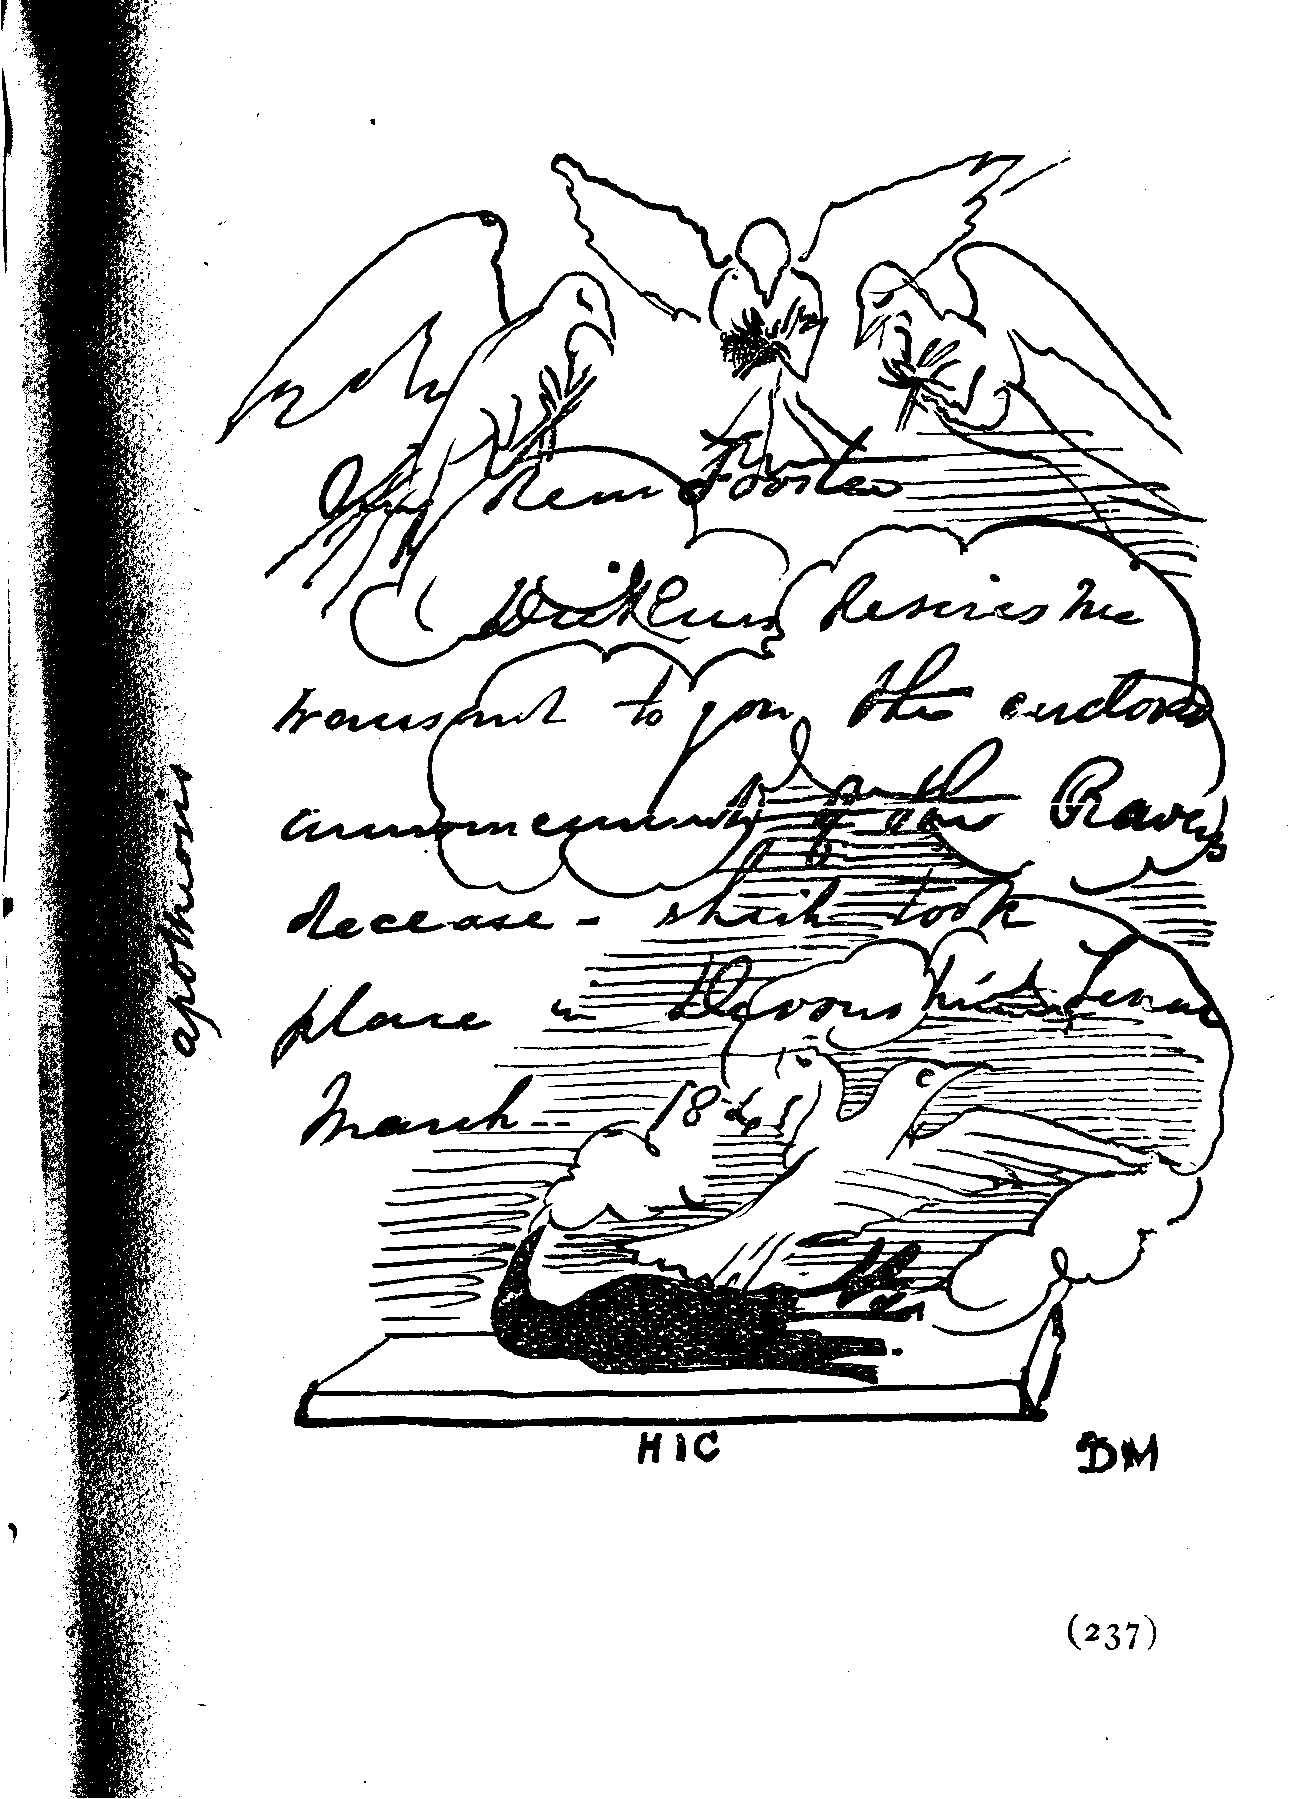 My dear Forster
Dickens desires me
transmit to you the enclosed
announcement of the Raven's
decease - which took
place in Devonshire Terrace
March -- 1841
apotheosis
HIC
DM
(237)